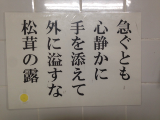 急ぐとも
心静かに
手を添えて
外に溢すな
松茸の露